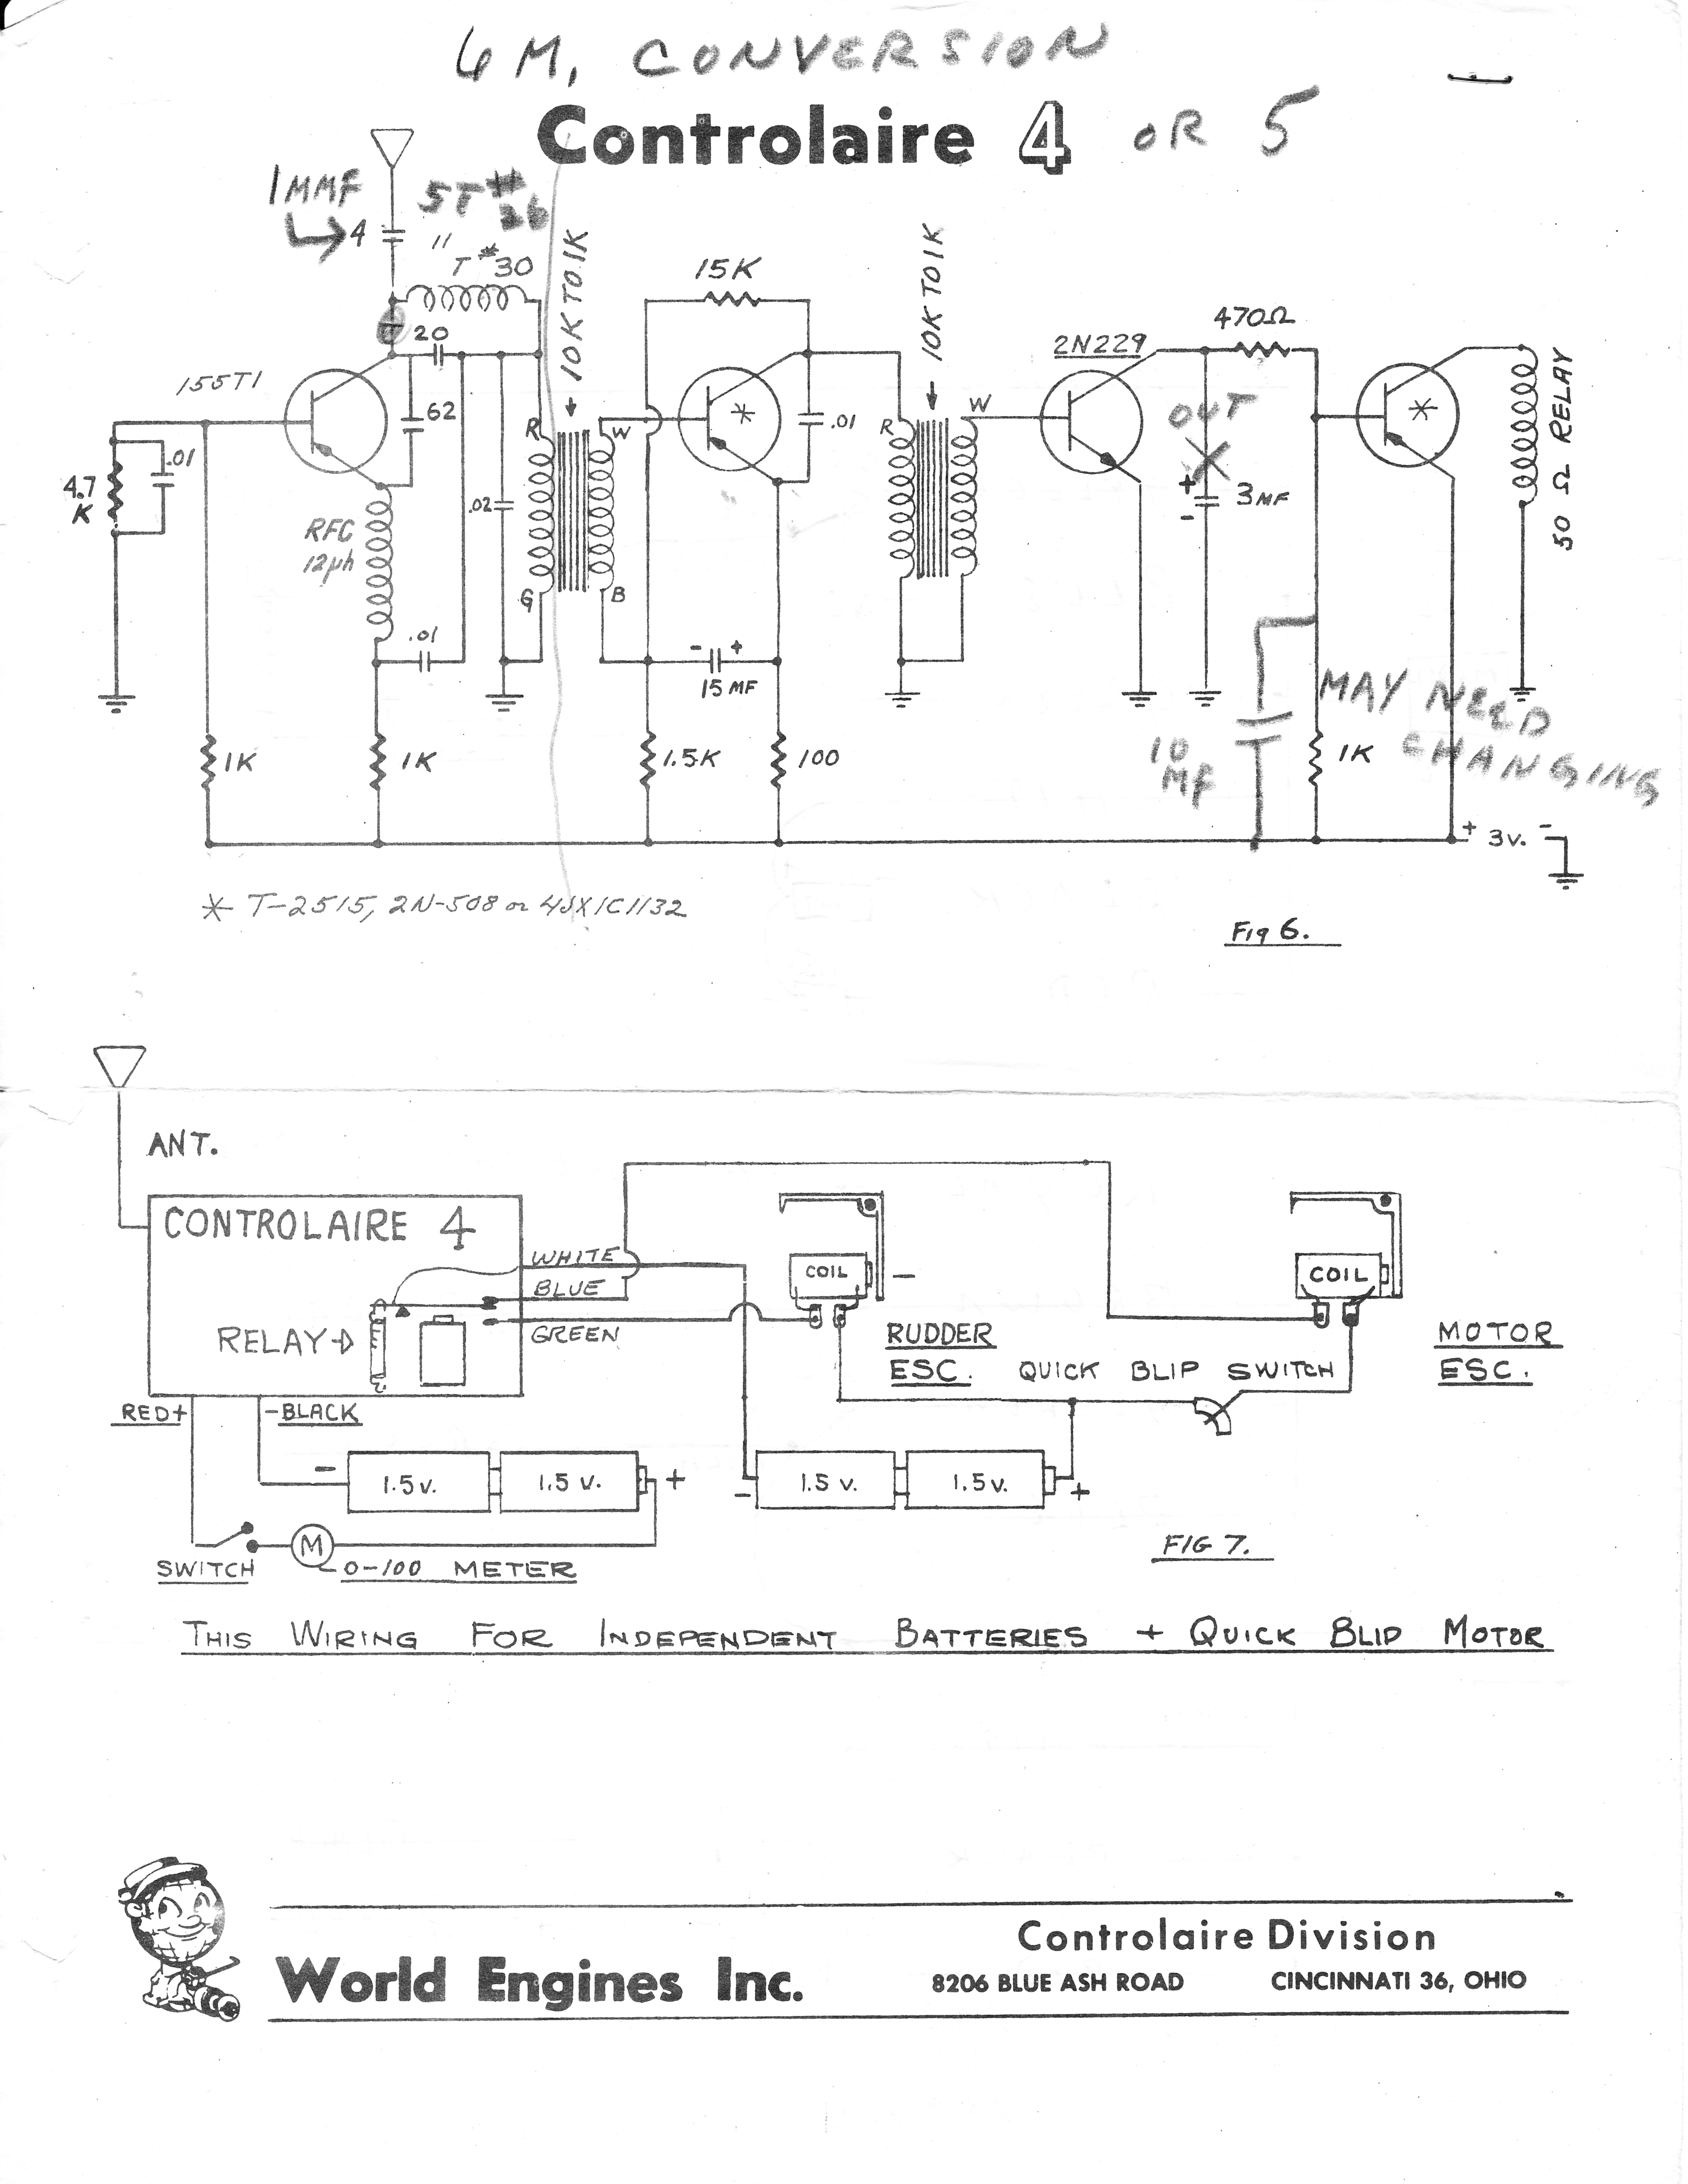 6 M, CONVERSION
Controlaire 4 OR 5
1MMF
4
5T #26
11
T #30
20
155T1
62
.01
4.7
K
RFC
12µh
.01
1K
1K
.02
10K TO 1K
R
G
W
B
15K
*
.01
- +
15 MF
1.5K
100
10K TO 1K
R
W
2N229
470Ω
OUT
X
+
-
3MF
*
50 Ω RELAY
10
MF
MAY NEED
CHANGING
1K
+ 3V. -
* T-2515, 2N-508 or 4JX1C1132
Fig 6.
ANT.
CONTROLAIRE 4
WHITE
BLUE
GREEN
RELAY
RED+
-BLACK
- 1.5 V. 1.5 V. +
SWITCH
M
0-100 METER
COIL
-
RUDDER
ESC.
QUICK BLIP SWITCH
COIL
MOTOR
ESC.
- 1.5 V. 1.5 V. +
FIG 7.
THIS WIRING FOR INDEPENDENT BATTERIES + QUICK BLIP MOTOR
World Engines Inc.
Controlaire Division
8206 BLUE ASH ROAD CINCINNATI 36, OHIO